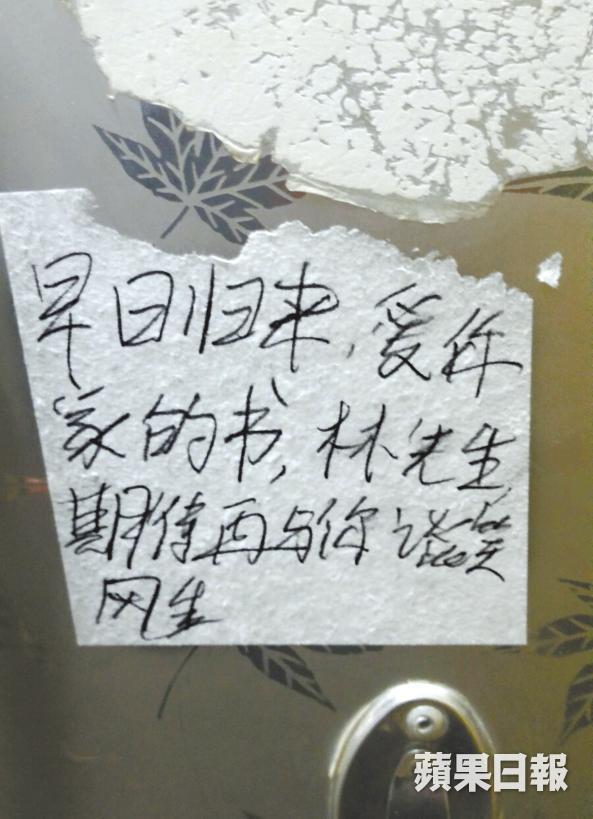 早日归来,爱你
家的书,林先生,
期待再与你谈笑
风生
蘋果日報